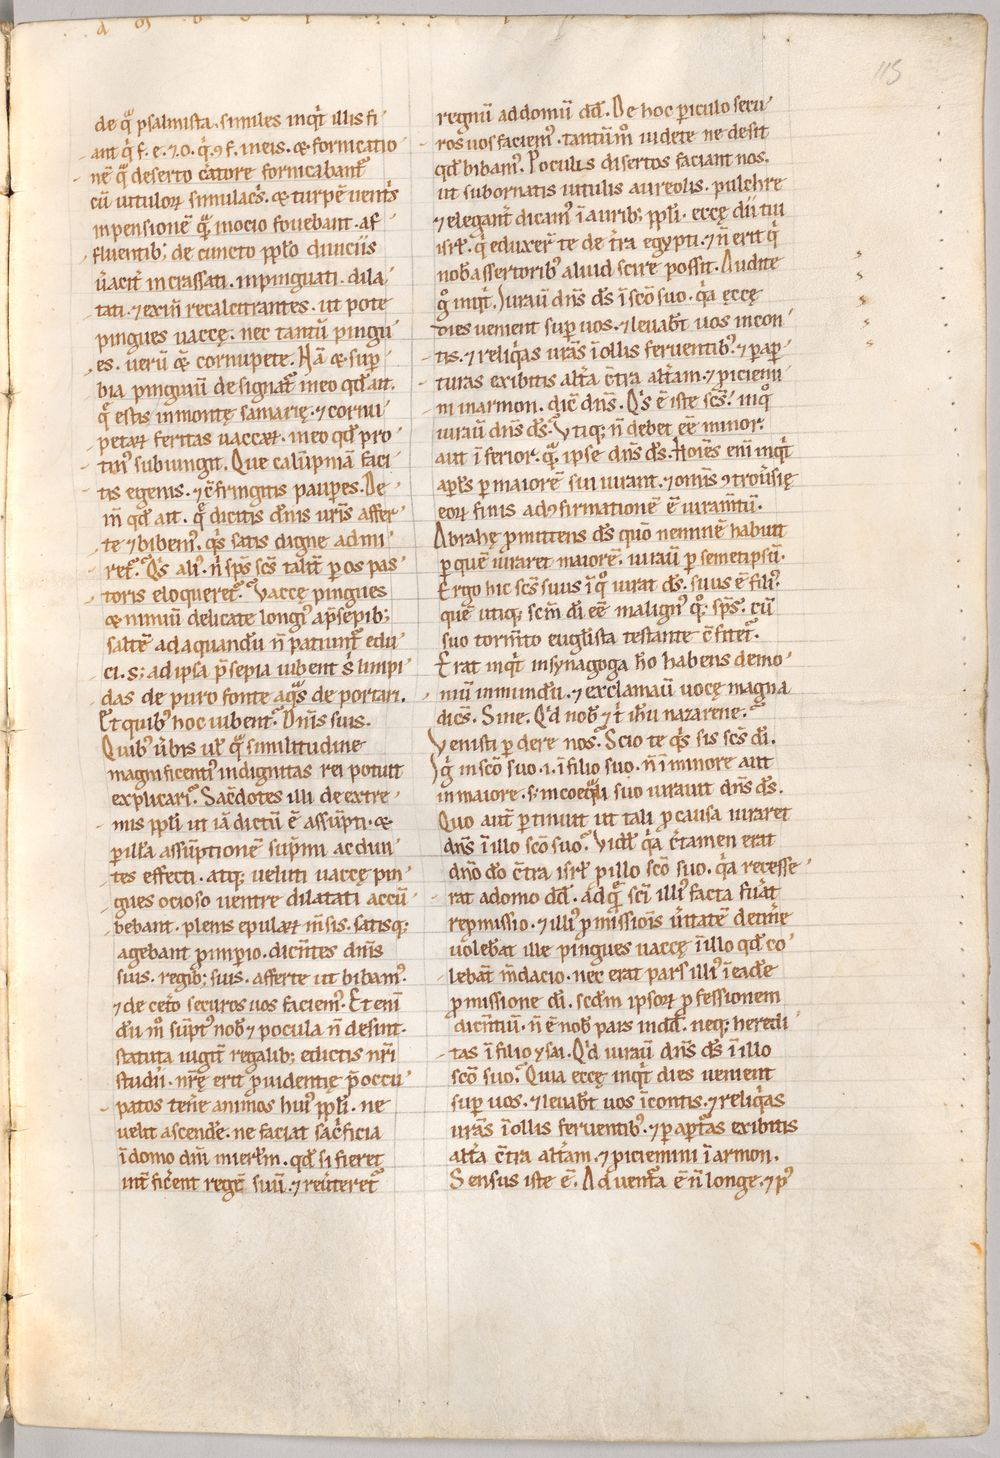 de q̃ psalmista. similes inqͥt illis fi
ant qͥ f. e. ⁊ .o. qͥ. ꝯ f. in eis. & fornicatio
nē qͣ deserto c̄atore fornicabantᷓ
cū uitulorꝝ simulacͥs. & turpē uentͥs
inpensionē qͣ in ocio fouebant. af
fluentib; de cuncto ppl̓o diuiciis
u̓acit̓ incrassati. inpinguati. dila
tati. ⁊ exin̄ recalcitrantes. ut pote
pingues uaccę. nec tantū pingu
es. uerū & cornupete. Nā & sup̲
bia pinguiū designatᷓ in eo qd̄ ait.
qͥ estis in montę samarię. ⁊ cornu
petaꝝ feritas uaccaꝝ. in eo qd̓ pro
tin̓ subiungit. Que calūpniā faci
tis egenis. ⁊ c̄fringitis paup̲es. De
in̄ qd̓ ait. qͥ dicitis dn̄is ur̄is affer
te ⁊ bibem̓. qͥs satis digne admi
retᷓ. Qͥs ali̓ n̓ sp̄s sc̄s talit̄ p̲ os pas
toris eloqueretᷓ. Vaccę pingues
& nimiū delicate longi̓ ap̄sepib;
saltē ad aquandū n̄ patiunt̄ edu
ci. s; ad ipsa p̄sepia iubent s̓ limpi
das de puro fonte aqͣs deportari.
Et quib̓ hoc iubent. Dn̄is suis.
Quib̓ ūbis ul̓ qͣ similitudine
magnificenti̓ indignitas rei potuit
explicari. Sac̄dotes illi de extre
mis ppl̓i ut iā dictū ē assūpti. &
p̲ illā assūptionē sup̄mi ac diui
tes effecti. atq; ueluti uaccę pin
gues ocioso uentre dilatati accū
bebant. plenis epulaꝝ m̄sis. satisq;
agebant p̲ inp̲io. dicn̄tes dn̄is
suis. regib; suis. afferte ut bibam̓.
⁊ de cet̓o securos uos faciem̓. Et eni̅
dū m̊ sūpt̓ nob̓ ⁊ pocula n̄ desint.
statuta uigit̄ regalib; edictis nr̄i
studii. nr̄ę erit p̲uidentię p̄occu
patos ten̄e animos hui̓ ppl̓i. ne
uelit ascende̓. ne faciat sac̓ficia
ī domo dn̄i in ierl̄m. qd̓ si fieret
int̄ficent regē suū. ⁊ reu̓teret̄
regnū ad domū dd̄. De hoc p̲iculo secu
ros uos faciem̓. tantūm̊ uidete ne desit
qd̓ bibam̓. Poculis disertos faciant nos.
ut subornatis uitulis aureolis. pulchre
⁊ elegant̓ dicam̓ ī aurib; ppl̓i. eccę dii tui
isrl̓. qͥ eduxer̄ te de t̓ra egypti. ⁊ n̄ erit qͥ
nob̓ assertorib̓ aliud scire possit. Audite
g̊ inqͥt. Iurauit̓ dn̄s ds̄ ī sc̄o suo. qͥa eccę
dies uenient sup̲ uos. ⁊ leuab̄t uos in con
tis. ⁊ reliqͥas ur̄as ī ollis feruentib̓. ⁊ p̲ ap̲
turas exibitis alt̓a c̄tra alt̓am. ⁊ p̲iciemi
ni in armon. dic̄ dn̄s. Qͥs ē iste sc̄s. in q̊
iurauit̓ dn̄s ds̄. Vtiq; n̄ debet ēē minor.
aut īferior. qͣ ipse dn̄s ds̄. Hoīes eni̅ inqͥt
apl̓s p̲ maiorē sui iurant. ⁊ omīs ꝯtrou̓się
eoꝝ finis ad ꝯfirmationē ē iuram̄tū.
Abrahę p̲mittens ds̄ quō neminē habuit
p̲ quē iuraret maiorē. iurauit̓ p̲ semetipsū.
Ergo hic sc̄s suus ī q̊ iurat ds̄. suus ē fili̓.
quē utiq; sc̄m dī ēē malign̓ qꝫ sp̄s. cū
suo torm̄to euglīsta testante c̄fitet̄.
Erat inqͥt in synagoga hō habens demo
niū inmundū. ⁊ exclamauit̓ uocę magna
dicēs. Sine. Qͥd nob̓ ⁊ tͥ ih̄u nazarene.
Venisti p̲dere nos. Scio te qͥs sis sc̄s dī.
Igͥ in sc̄o suo .i. ī filio suo. n̄ ī minore aut
in maiore. s; in coeq̄li suo iurauit dn̄s ds̄.
Quo aut̄ p̲tinuit ut tali p̲ causa iuraret
dn̄s ī illo sc̄o suo. Vidl̓ qͥa c̓tamen erat
dn̄o dō c̄tra isrl̓ p̲ illo sc̄o suo. qͥa recesse
rat a domo dd̄. ad qͣ sc̄i illi̓ facta fuāt
rep̲missio. ⁊ illi̓ p̲missiōis u̓itatē detin̄e
uoleb̄at ille pingues uaccę ī illo qd̓ co
lebāt m̄dacio. nec erat pars illi̓ ī eadē
p̲missione dī. scd̄m ipsoꝝ p̲fessionem
dicn̄tiū. n̄ ē nob̓ pars in dd̄. neq; heredi
tas ī filio ysai. Qͥd iurauit̓ dn̄s ds̄ ī illo
scō suo. Quia eccę inqͥt dies uenient
sup̲ uos. ⁊ leuab̄t uos ī contis. ⁊ reliqͥas
ur̄as ī ollis feruentib̓. ⁊ p̲ ap̲tᷓas exibitis
alt̓a c̄tra alt̓am. ⁊ p̲iciemini ī armon.
Sensus iste ē. Aduentᷓa ē n̄ longe. ⁊ p̓
115